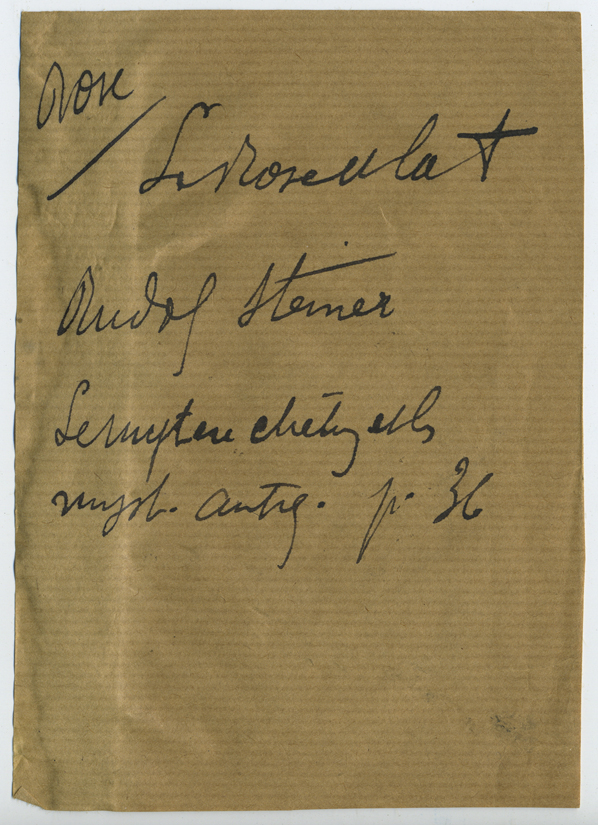 Rose
/ La Rose et la †
Rudolf Steiner
Le mystère chrétien et les
myst. antiq. p. 36